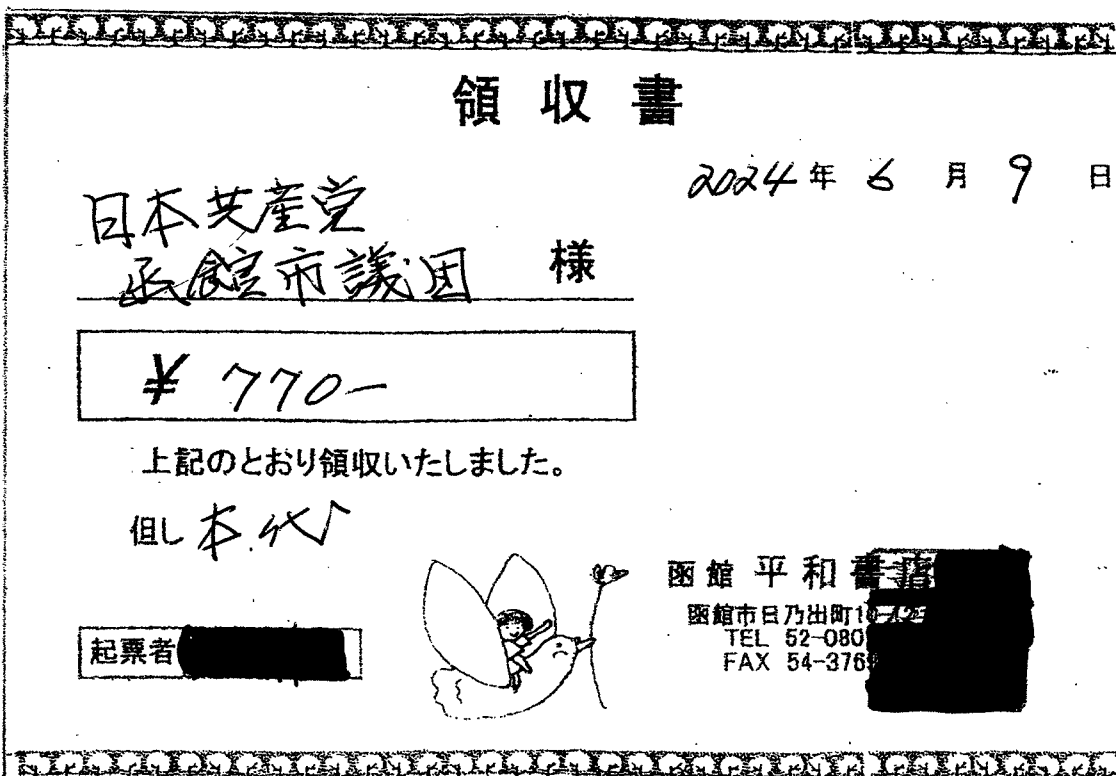 領収書
2024年 6 月 9 日
日本共産党
函館市議団 様
¥ 770-
上記のとおり領収いたしました。
但し 本代
函館 平和書店
函館市日乃出町10-12-
TEL 52-080
FAX 54-376
起票者